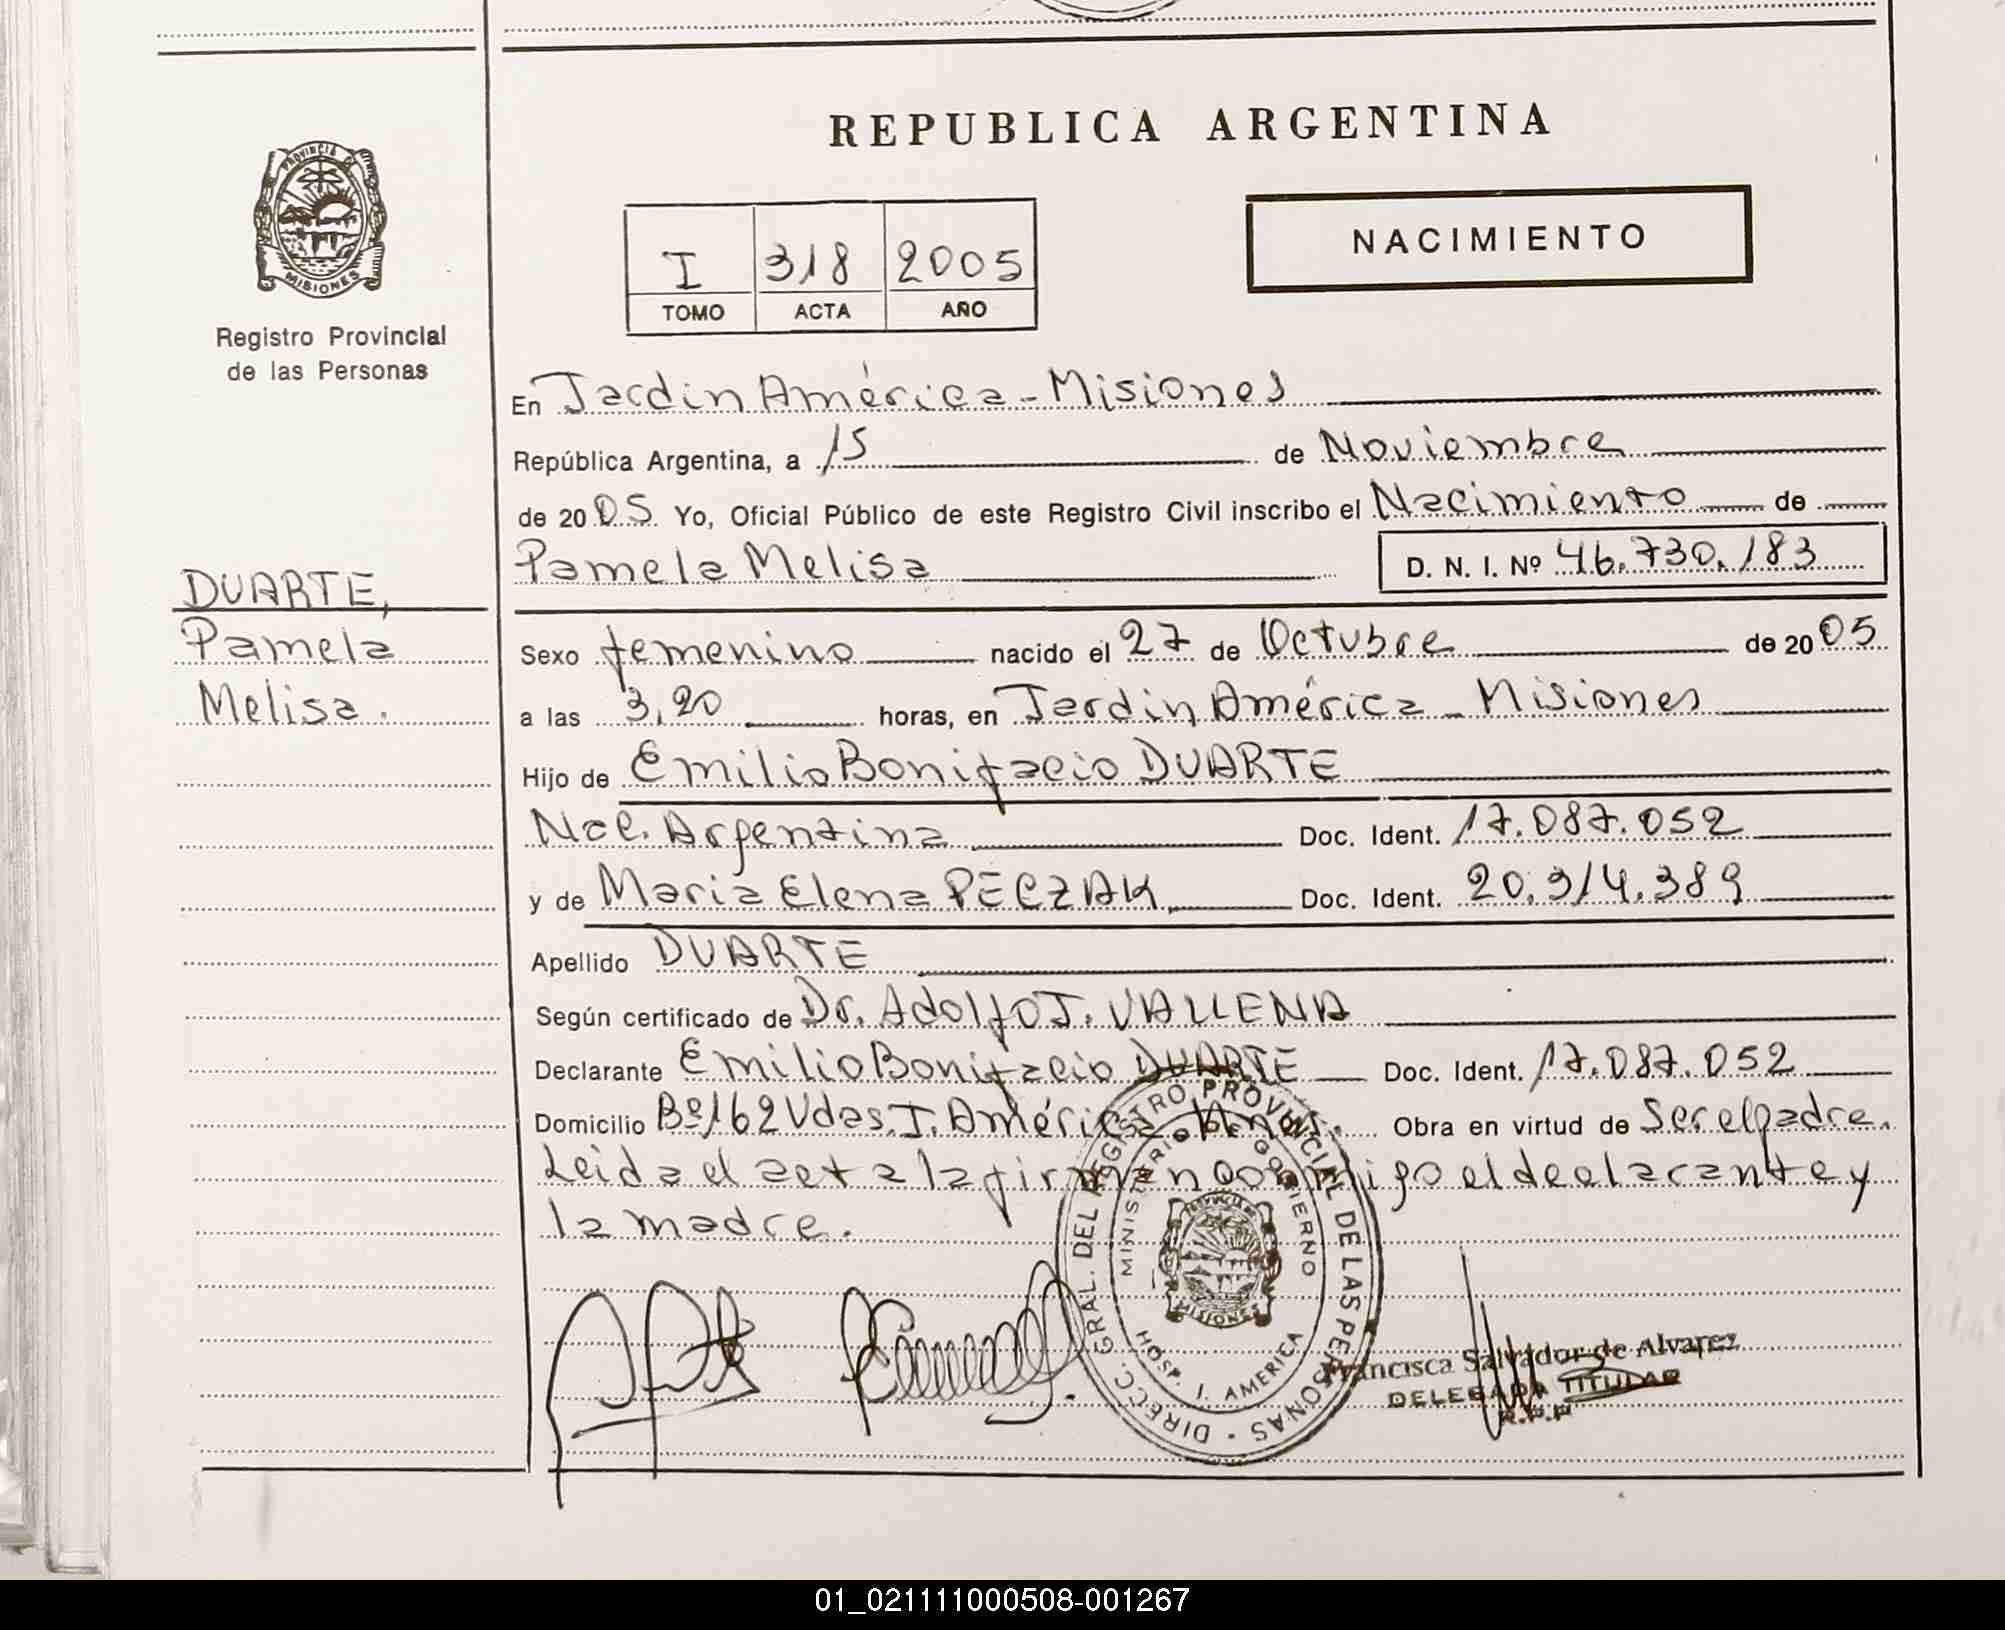 REPUBLICA ARGENTINA
PROVINCIA DE
MISIONES
Registro Provincial
de las Personas
I 318 2005
TOMO ACTA AÑO
NACIMIENTO
En Jardin América - Misiones
República Argentina, a 15 de Noviembre
de 2005 Yo, Oficial Público de este Registro Civil inscribo el Nacimiento de
Pamela Melisa D. N. I. Nº 46.730.183
DUARTE,
Pamela
Melisa.
Sexo femenino nacido el 27 de Octubre de 2005
a las 3,20 horas, en Jardin América - Misiones
Hijo de Emilio Bonifacio DUARTE
Nac. Argentina Doc. Ident. 17.087.052
y de Maria Elena PECZAK, Doc. Ident. 20.314.389
Apellido DUARTE
Según certificado de Dr. Adolfo J. VALLENA
Declarante Emilio Bonifacio DUARTE Doc. Ident. 17.087.052
Domicilio Bº 162 Vdas. J. América Mnes. Obra en virtud de Ser el padre.
Leida el acta la firman conmigo el declarante y
la madre.
DIRECC. GRAL. DEL REGISTRO PROVINCIAL DE LAS PERSONAS
MINISTERIO DE GOBIERNO
MISIONES
HOSP. J. AMERICA
Francisca Salvador de Alvarez
DELEGADA TITULAR
R.P.P
01_021111000508-001267